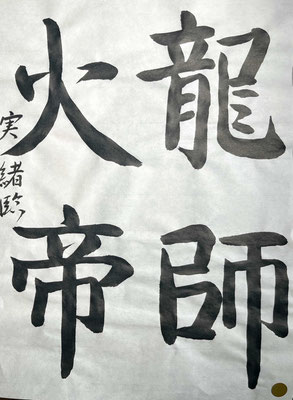 龍師
火帝
実緒臨